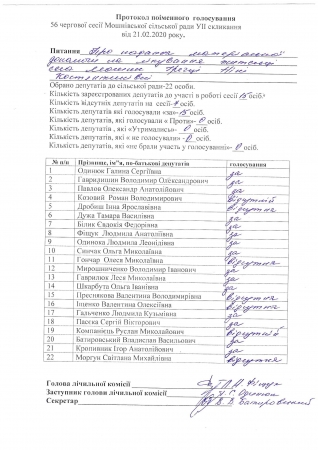 Протокол поіменного голосування
56 чергової сесії Мошнівської сільської ради УІІ скликання
від 21.02.2020 року.
Питання Про надання матеріальної
допомоги на лікування жительці
села Мошни
Костянтинівні
Обрано депутатів до сільської ради-22 особи.
Кількість зареєстрованих депутатів до участі в роботі сесії 15 осіб
Кількість відсутніх депутатів на сесії- 7 осіб.
Кількість депутатів які голосували «за»- 15 осіб.
Кількість депутатів, які голосували « Проти»- 0 осіб.
Кількість депутатів , які «Утримались»- 0 осіб.
Кількість депутатів, які « не голосували» - 0 осіб.
Кількість депутатів, які «не брали участь у голосуванні»- 0 осіб.
№ п/п Прізвище, ім"я, по-батькові депутатів голосування
1 Одинюк Галина Сергіївна за
2 Гавридишин Володимир Олександрович за
3 Павлов Олександр Анатолійович за
4 Казовий Роман Володимирович відсутній
5 Дробиш Інна Ярославівна відсутня
6 Дужа Тамара Василівна за
7 Білик Євдокія Федорівна за
8 Фіщук Людмила Анатоліївна за
9 Одинока Людмила Леонідівна за
10 Свичак Ольга Миколаївна за
11 Гончар Олеся Миколаївна відсутня
12 Мирошниченко Володимир Іванович за
13 Гаврилюк Леся Миколаївна за
14 Шкарбута Ольга Іванівна за
15 Преснякова Валентина Володимирівна відсутня
16 Іщенко Валентина Олексіївна відсутня
17 Гальченко Людмила Кузьмівна за
18 Пасєка Сергій Вікторович за
19 Компанієць Руслан Миколайович відсутній
20 Батировський Владислав Васильович за
21 Кропивник Ігор Анатолійович за
22 Моргун Світлана Михайлівна відсутня
Голова лічильної комісії Л.А. Фіщук
Заступник голови лічильної комісії Г.С. Одинюк
Секретар В.В. Батировський